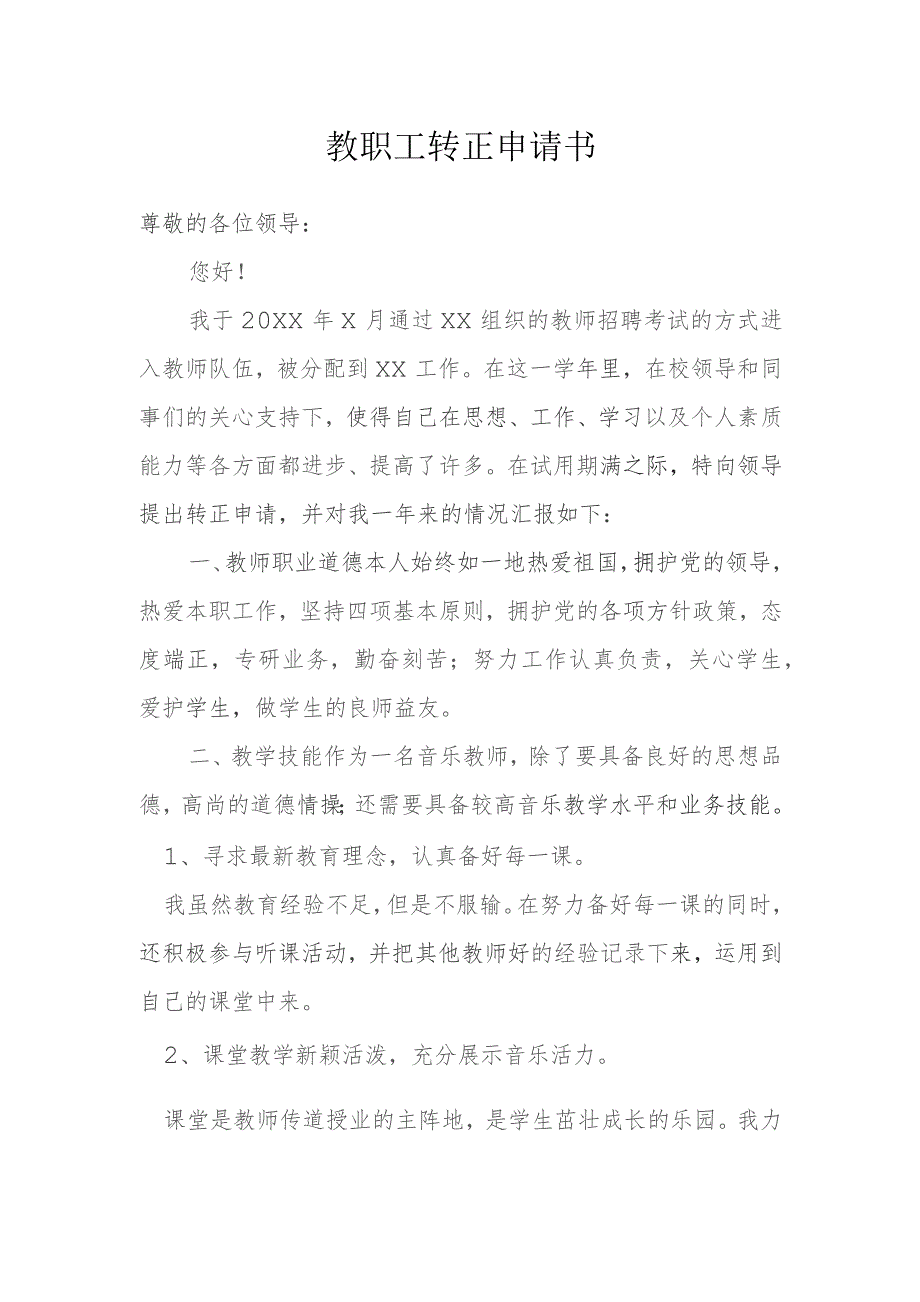 教职工转正申请书
尊敬的各位领导：
您好！
我于20XX年X月通过XX组织的教师招聘考试的方式进
入教师队伍，被分配到XX工作。在这一学年里，在校领导和同
事们的关心支持下，使得自己在思想、工作、学习以及个人素质
能力等各方面都进步、提高了许多。在试用期满之际，特向领导
提出转正申请，并对我一年来的情况汇报如下：
一、教师职业道德本人始终如一地热爱祖国，拥护党的领导，
热爱本职工作，坚持四项基本原则，拥护党的各项方针政策，态
度端正，专研业务，勤奋刻苦；努力工作认真负责，关心学生，
爱护学生，做学生的良师益友。
二、教学技能作为一名音乐教师，除了要具备良好的思想品
德，高尚的道德情操；还需要具备较高音乐教学水平和业务技能。
1、寻求最新教育理念，认真备好每一课。
我虽然教育经验不足，但是不服输。在努力备好每一课的同时，
还积极参与听课活动，并把其他教师好的经验记录下来，运用到
自己的课堂中来。
2、课堂教学新颖活泼，充分展示音乐活力。
课堂是教师传道授业的主阵地，是学生茁壮成长的乐园。我力